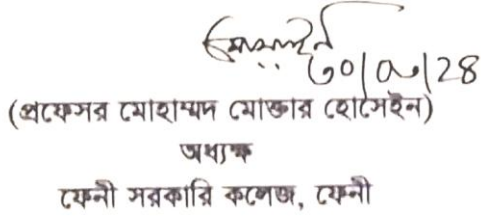 (প্রফেসর মোহাম্মদ মোক্তার হোসেইন)
অধ্যক্ষ
ফেনী সরকারি কলেজ, ফেনী